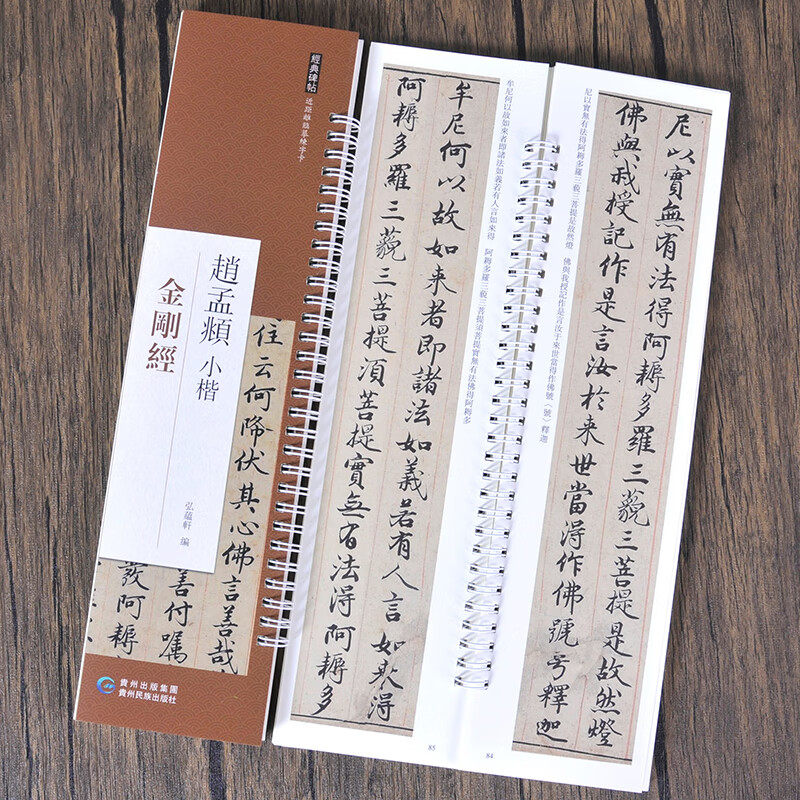 經典碑帖
近距離臨摹練字卡
趙孟頫 小楷
金剛經
弘蘊軒 編
住云何降伏其心佛言善哉
善付嘱
發阿耨
貴州出版集團
貴州民族出版社
尼以實無有法得阿耨多羅三藐三菩提是故然燈
佛與我授記作是言汝於来世當得作佛號号釋迦
尼以實無有法得阿耨多羅三藐三菩提是故然燈 佛與我授記作是言汝于來世當得作佛號〈號〉釋迦
84
牟尼何以故如来者即諸法如義若有人言如来得
阿耨多羅三藐三菩提湏菩提實無有法得阿耨多
牟尼何以故如來者即諸法如義若有人言如來得 阿耨多羅三藐三菩提須菩提實無有法佛得阿耨多
85